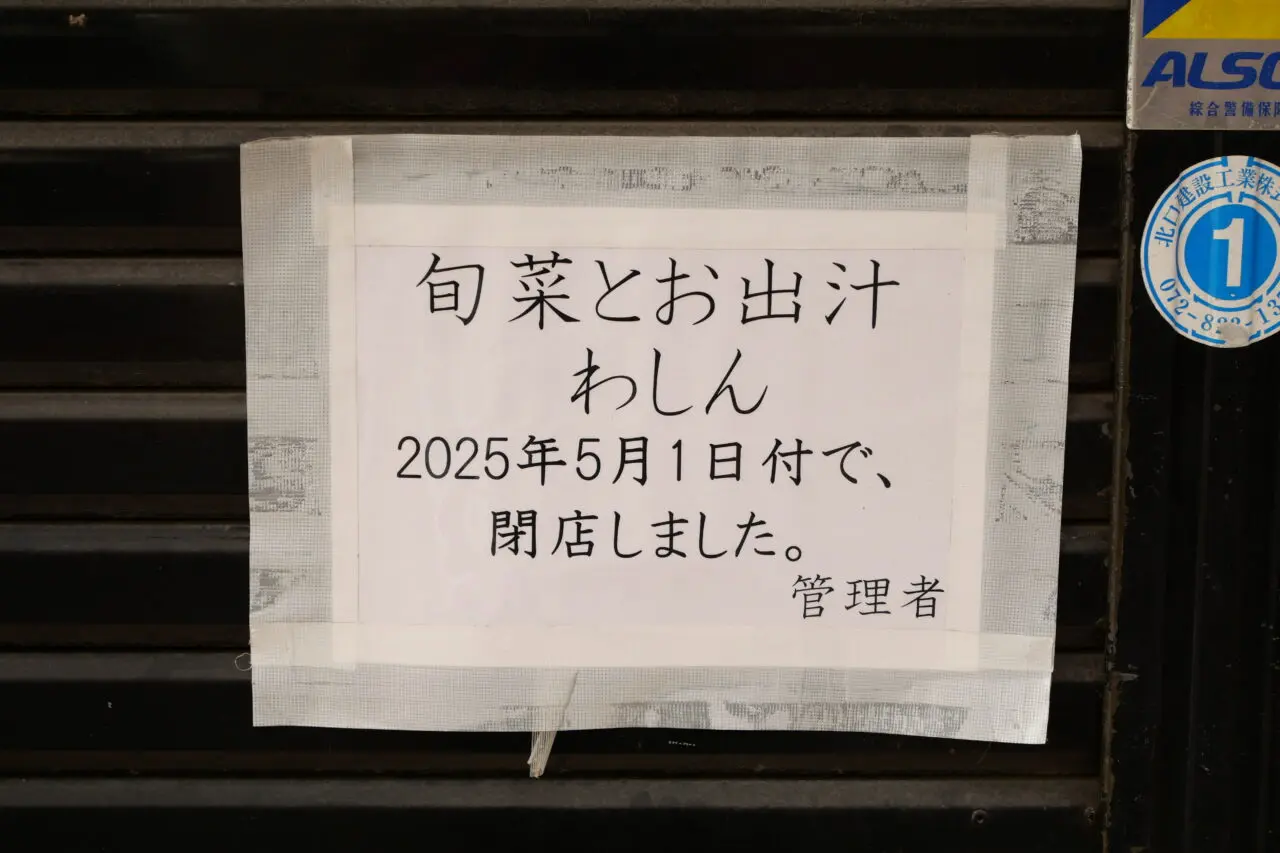 旬菜とお出汁
わしん
2025年5月1日付で、
閉店しました。
管理者
ALSO
綜合警備保障
北口建設工業株式
1